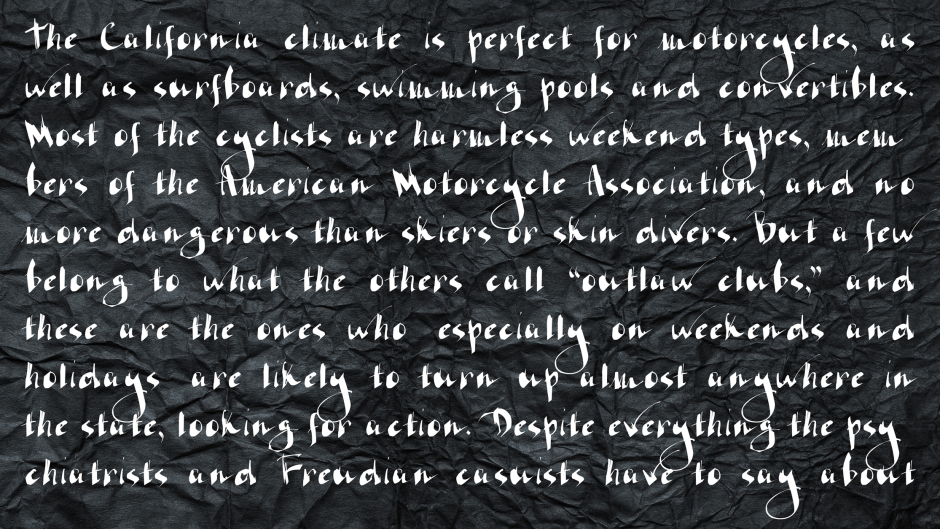 The California climate is perfect for motorcycles, as
well as surfboards, swimming pools and convertibles.
Most of the cyclists are harmless weekend types, mem
bers of the American Motorcycle Association, and no
more dangerous than skiers or skin divers. But a few
belong to what the others call “outlaw clubs,” and
these are the ones who especially on weekends and
holidays are likely to turn up almost anywhere in
the state, looking for action. Despite everything the psy
chiatrists and Freudian casuists have to say about